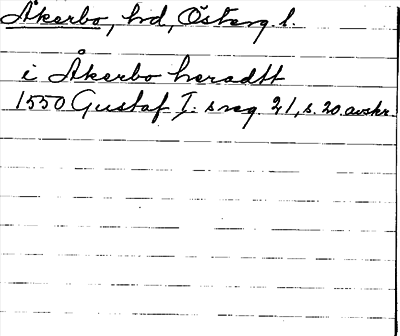 Åkerbo, hd, Österg. l.
i Åkerbo heradtt
1550 Gustaf I: s reg. 21, s. 20. avskr.